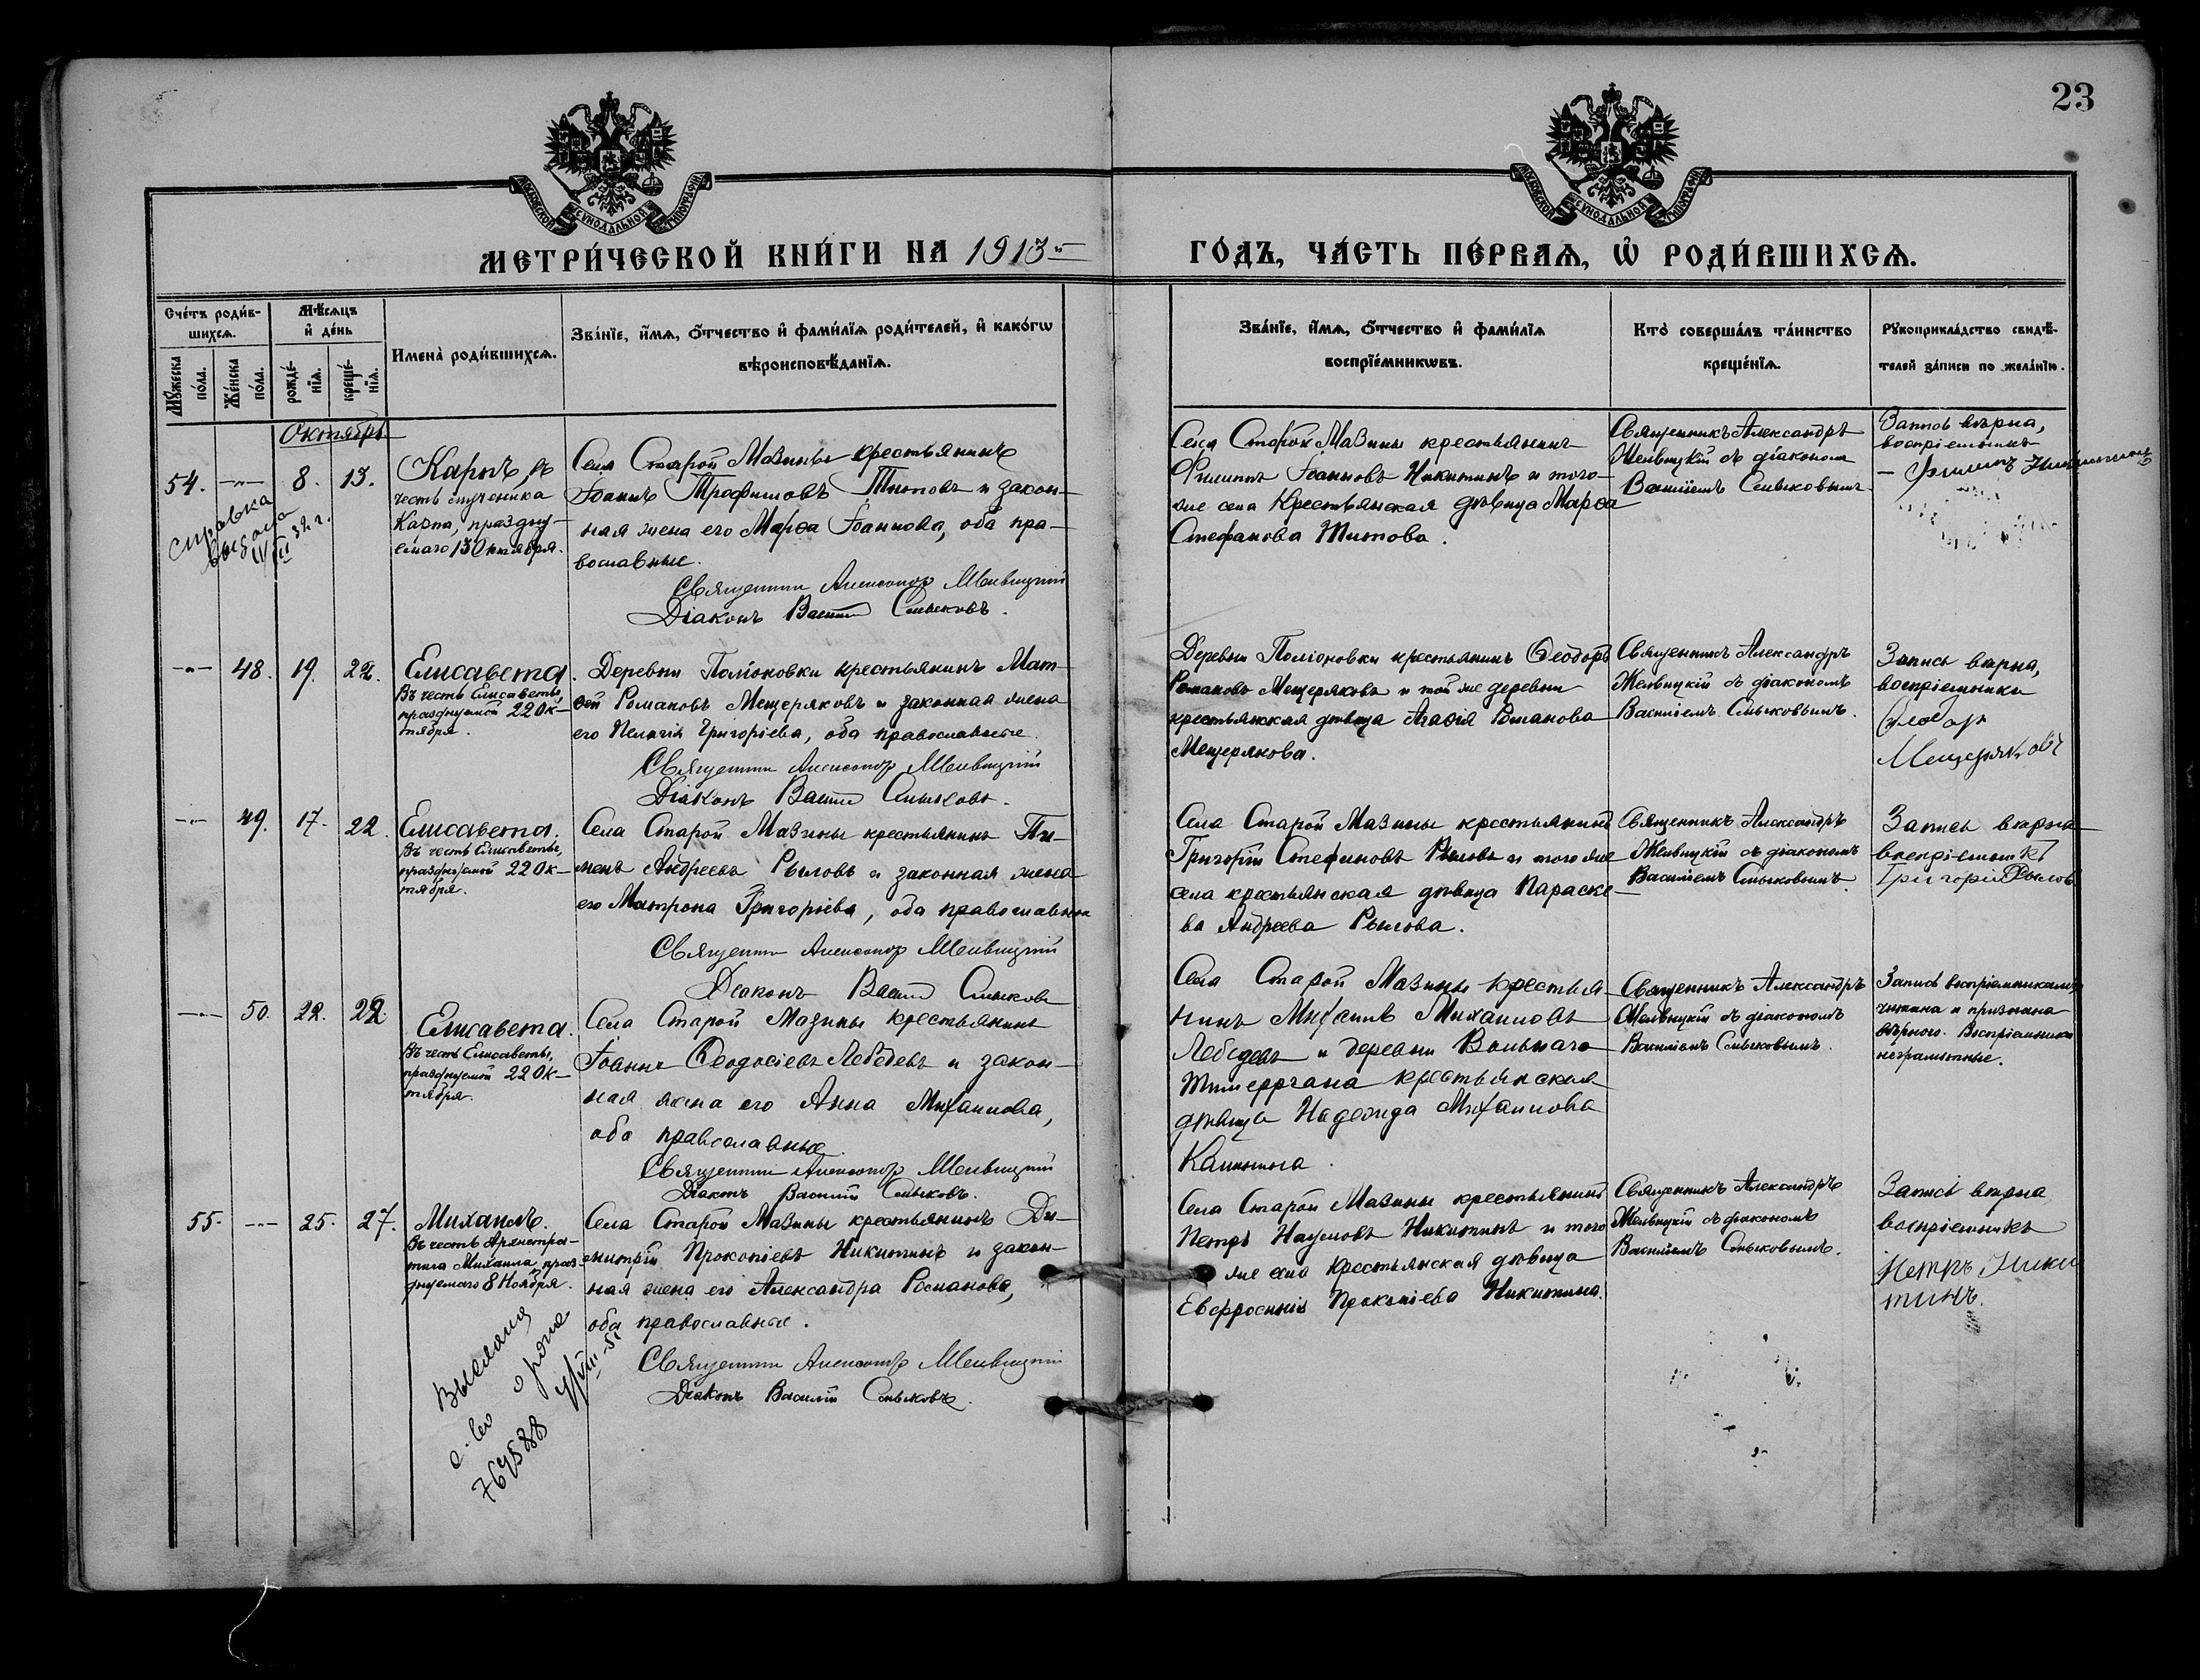 23
МОСКОВСКОЙ СѴНОДАЛЬНОЙ ТИПОГРАФІИ
МОСКОВСКОЙ СѴНОДАЛЬНОЙ ТИПОГРАФІИ
МЕТРИ́ЧЕСКОЙ КНИ́ГИ НА 1913й
ГО́ДЪ, ЧА́СТЬ ПЕ́РВАѦ, Ѡ҆ РОДИ́ВШИХСѦ.
Сче́тъ роди́в-
шихсѧ.
Мꙋ́жеска по́ла.
Же́нска по́ла.
Мѣ́сѧцъ
и҆ де́нь
рожде́-
нїѧ.
креще́-
нїѧ.
Имена̀ роди́вшихсѧ.
Зва́нїе, и҆́мѧ, ѻ҆́тчество и҆ фами́лїѧ роди́телей, и҆ како́гѡ
вѣроисповѣ́данїѧ.
Зва́нїе, и҆́мѧ, ѻ҆́тчество и҆ фами́лїѧ
воспрїе́мникѡвъ.
Кто̀ соверша́лъ та́инство
креще́нїѧ.
Рꙋкоприкла́дство свидѣ́-
телей за́писи по жела́нїю.
Октябрь
54. -"- 8. 13.
Карпъ, въ
честь мученика
Карпа, праздну-
емаго 13 Октября.
справка
выдана
32 г.
Села Старой Мазины крестьянинъ
Іоаннъ Трофимовъ Титовъ и закон-
ная жена его Марѳа Іоаннова, оба пра-
вославные.
Священник Александр Мельвицкий
Діаконъ Василий Смысковъ.
Села Старой Мазины крестьянинъ
Филиппъ Іоанновъ Никитинъ и того-
же села крестьянская дѣвица Марѳа
Стефанова Титова.
Священникъ Александръ
Мельвицкій съ діакономъ
Василіемъ Смысковымъ.
Запись вѣрна,
воспріемникъ
Филипъ Никитинъ
-"- 48. 19. 22.
Елисавета.
Въ честь Елисаветы,
празднуемой 22 Ок-
тября.
Деревни Поліоновки крестьянинъ Мат-
ѳей Романовъ Мещеряковъ и законная жена
его Пелагія Григоріева, оба православные.
Священник Александр Мельвицкий
Діаконъ Василий Смысковъ.
Деревни Поліоновки крестьянинъ Ѳеодоръ
Романовъ Мещеряковъ и той же деревни
крестьянская дѣвица Агаѳія Романова
Мещерякова.
Священникъ Александръ
Мельвицкій съ діакономъ
Василіемъ Смысковымъ.
Запись вѣрна,
воспріемники
Мещеряковъ
-"- 49. 17. 22.
Елисавета.
Въ честь Елисаветы,
празднуемой 22 Ок-
тября.
Села Старой Мазины крестьянинъ Пи-
менъ Андреевъ Рыловъ и законная жена
его Матрона Григоріева, оба православные
Священник Александр Мельвицкий
Діаконъ Василий Смысковъ
Села Старой Мазины крестьянинъ
Григорій Стефановъ Рыловъ и того же
села крестьянская дѣвица Параске-
ва Андреева Рылова.
Священникъ Александръ
Мельвицкій съ діакономъ
Василіемъ Смысковымъ.
Запись вѣрна
воспріемникъ
Григорій Рылов
-"- 50. 22. 22.
Елисавета.
Въ честь Елисаветы,
празднуемой 22 Ок-
тября.
Села Старой Мазины крестьянинъ
Іоаннъ Ѳеодосіевъ Лебедевъ и закон-
ная жена его Анна Михаилова,
оба православные.
Священник Александр Мельвицкий
Діаконъ Василий Смысковъ.
Села Старой Мазины крестья-
нинъ Михаилъ Михаиловъ
Лебедевъ и деревни Вольнаго
Тимерргана крестьянская
дѣвица Надежда Михаилова
Калинина.
Священникъ Александръ
Мельвицкій съ діакономъ
Василіемъ Смысковымъ.
Запись воспріемниками
читана и признана
вѣрною. Воспріемники
неграмотные.
55. -"- 25. 27.
Михаилъ.
Въ честь Архистра-
тига Михаила, праз-
днуемаго 8 Ноября.
Выслано
с-во о рожд
Села Старой Мазины крестьянинъ Ди-
митрій Прокопіевъ Никитинъ и закон-
ная жена его Александра Романова,
оба православные.
Священник Александр Мельвицкий
Діаконъ Василій Смысковъ.
Села Старой Мазины крестьянинъ
Петръ Наумовъ Никитинъ и того
же села крестьянская дѣвица
Евфросинія Прокопіева Никитина.
Священникъ Александръ
Мельвицкій съ діакономъ
Василіемъ Смысковымъ.
Запись вѣрна
воспріемникъ
Петръ Ники
тинъ.